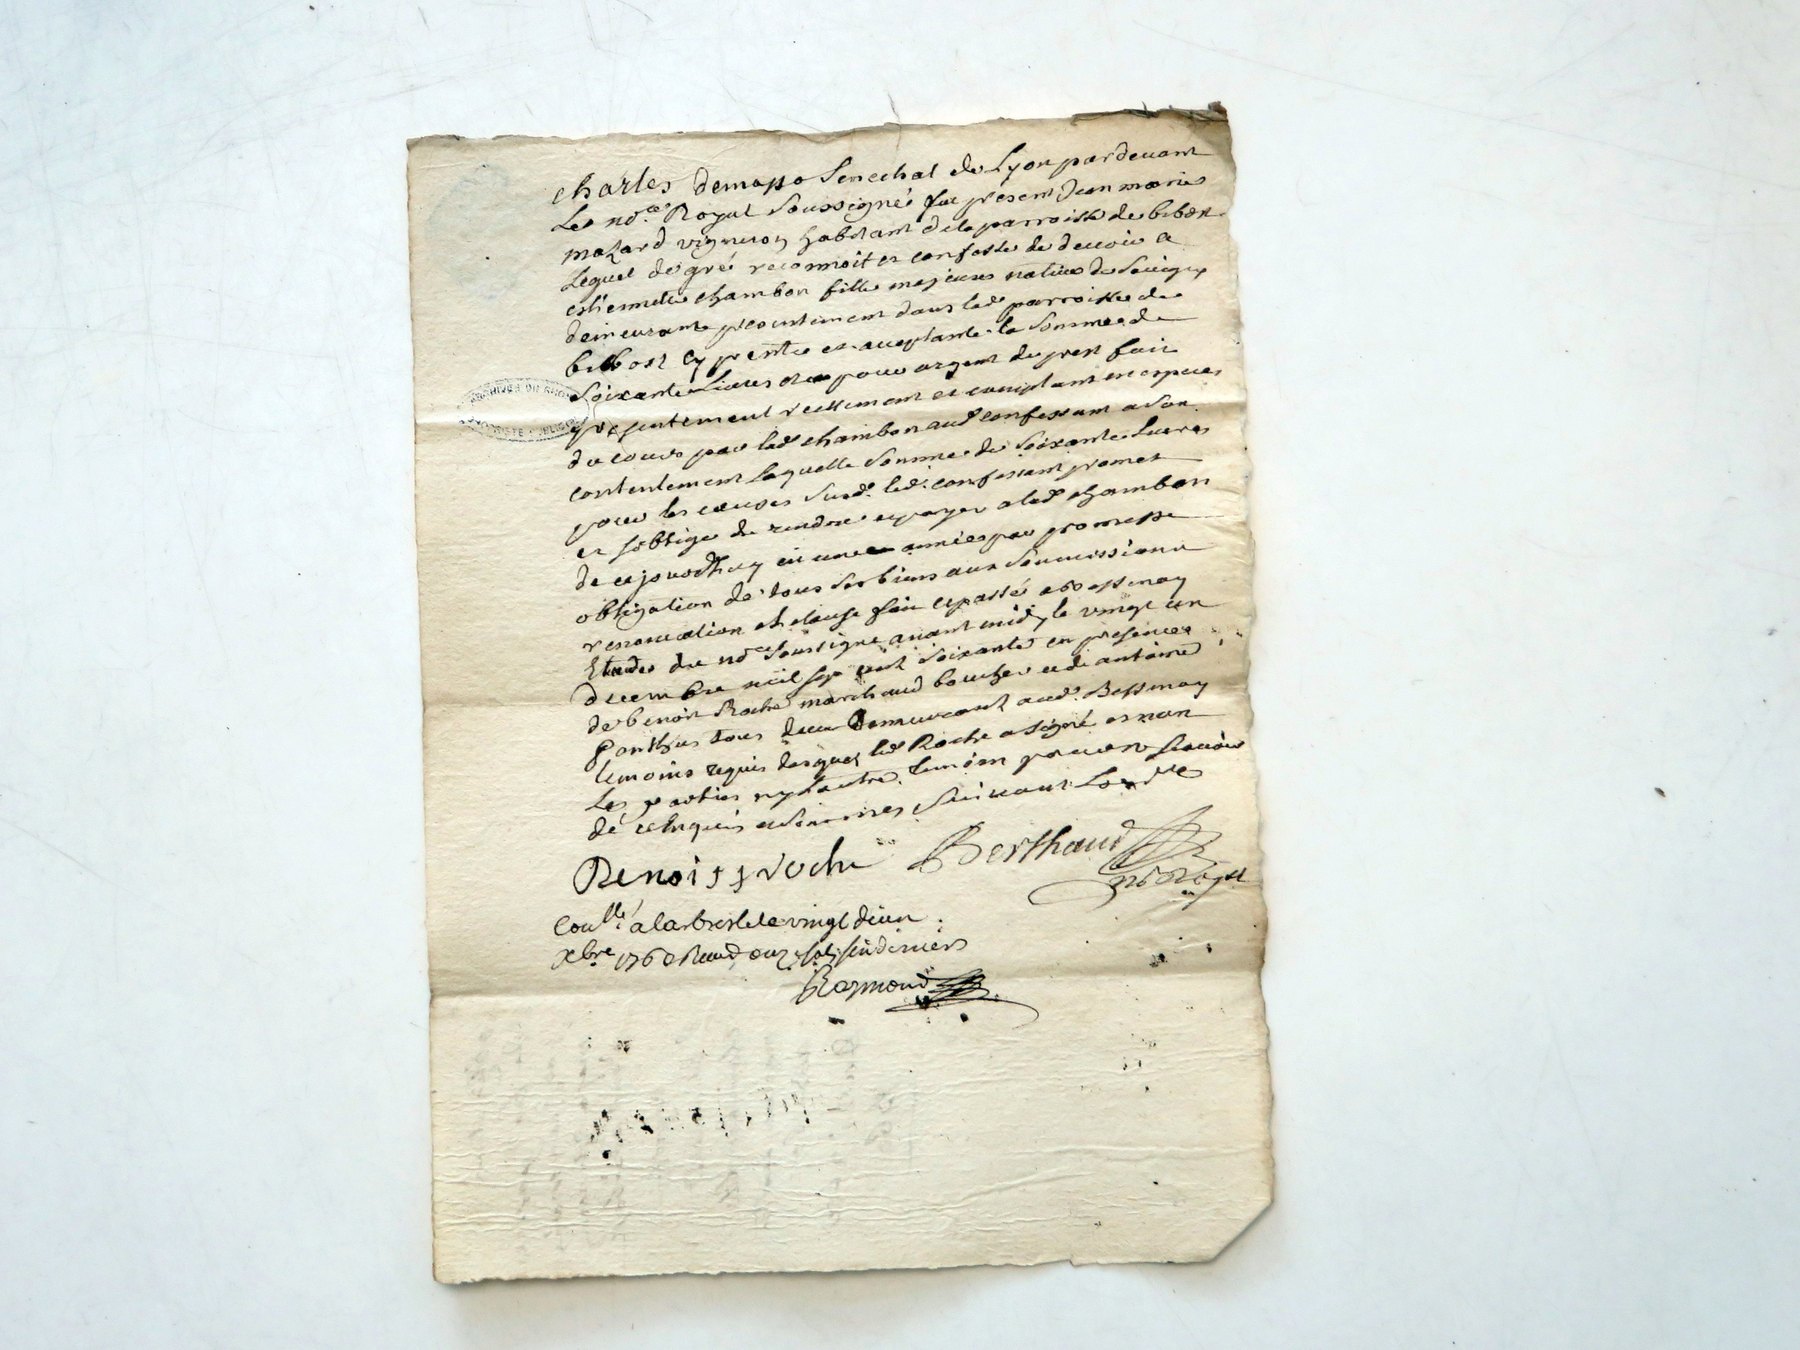 charles demasso Senechal de Lyon pardevant
Le no.re Royal Soussigné fut présent Jean marie
mazard vigneron habitant de la parroisse de bibost
Lequel de gré reconnoit et confesse de devoir a
estiennette chambon fille majeure native de Savigny
demeurante presentement dans lad.e parroisse de
bibost cy pr'nte et acceptante la Somme de
Soixante Livres pour argent de prest fait
presentement reellement et comptant en especes
du cours par lad.e chambon aud.t confessant a son
contentement Laquelle Somme de Soixante Livres
pour les causes Susd. led. confessant promet
et s'oblige de rendre et payer a lad.e chambon
de cejourdhuy en une année par promesse
obligation de tous Ses biens aux Soumissions
renonciation et clause fait et passé a Bessenay
Etude du no.re Soussigné avant midy le vingt un
decembre mil sept cent Soixante en presence
de benoit Roche marchand boucher et de antoine
Ponthus tous deux demeurant aud. Bessenay
temoins requis desquels led. Roche a signé et non
Les parties ny l'autre temoin pour ne scavoir
de ce enquis et Sommés Suivant Lord.ce
Benoist roche Berthaud
no.re Royal
Con.llé a larbresle le vingt deux
xbre 1760 Reçu douze sols Six deniers
Raymond
ARCHIVES DU RHONE